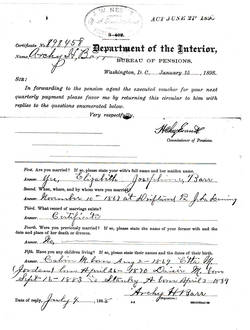 ACT JUNE 27 1890
3-402.
Certificate No. 898458
Name, Archy H Barr
Department of the Interior,
BUREAU OF PENSIONS,
Washington, D. C., January 15, 1898.
SIR:
In forwarding to the pension agent the executed voucher for your next
quarterly payment please favor me by returning this circular to him with
replies to the questions enumerated below.
Very respectfully,
Commissioner of Pensions.
First. Are you married? If so, please state your wife's full name and her maiden name.
Yes, Elizabeth Josephine Barr
Second. When, where, and by whom were you married?
November 10th 1867 at
Third. What record of marriage exists?
Certificate
Fourth. Were you previously married? If so, please state the name of your former wife and the
date and place of her death or divorce.
No
Fifth. Have you any children living? If so, please state their names and the dates of their birth.
born 1869
born April 1870
Sept 12th 1883 Stanley H born April 3 1889
Archy H Barr
Date of reply, July 4, 1898